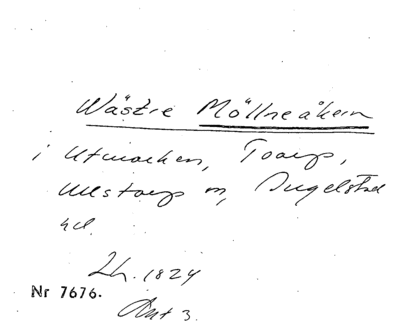 Wästre Möllneåkern
i Utmarken, Toarp,
Ullstorp sn, Ingelstad
hd.
Lh. 1824
Nr 7676.
Akt 3.